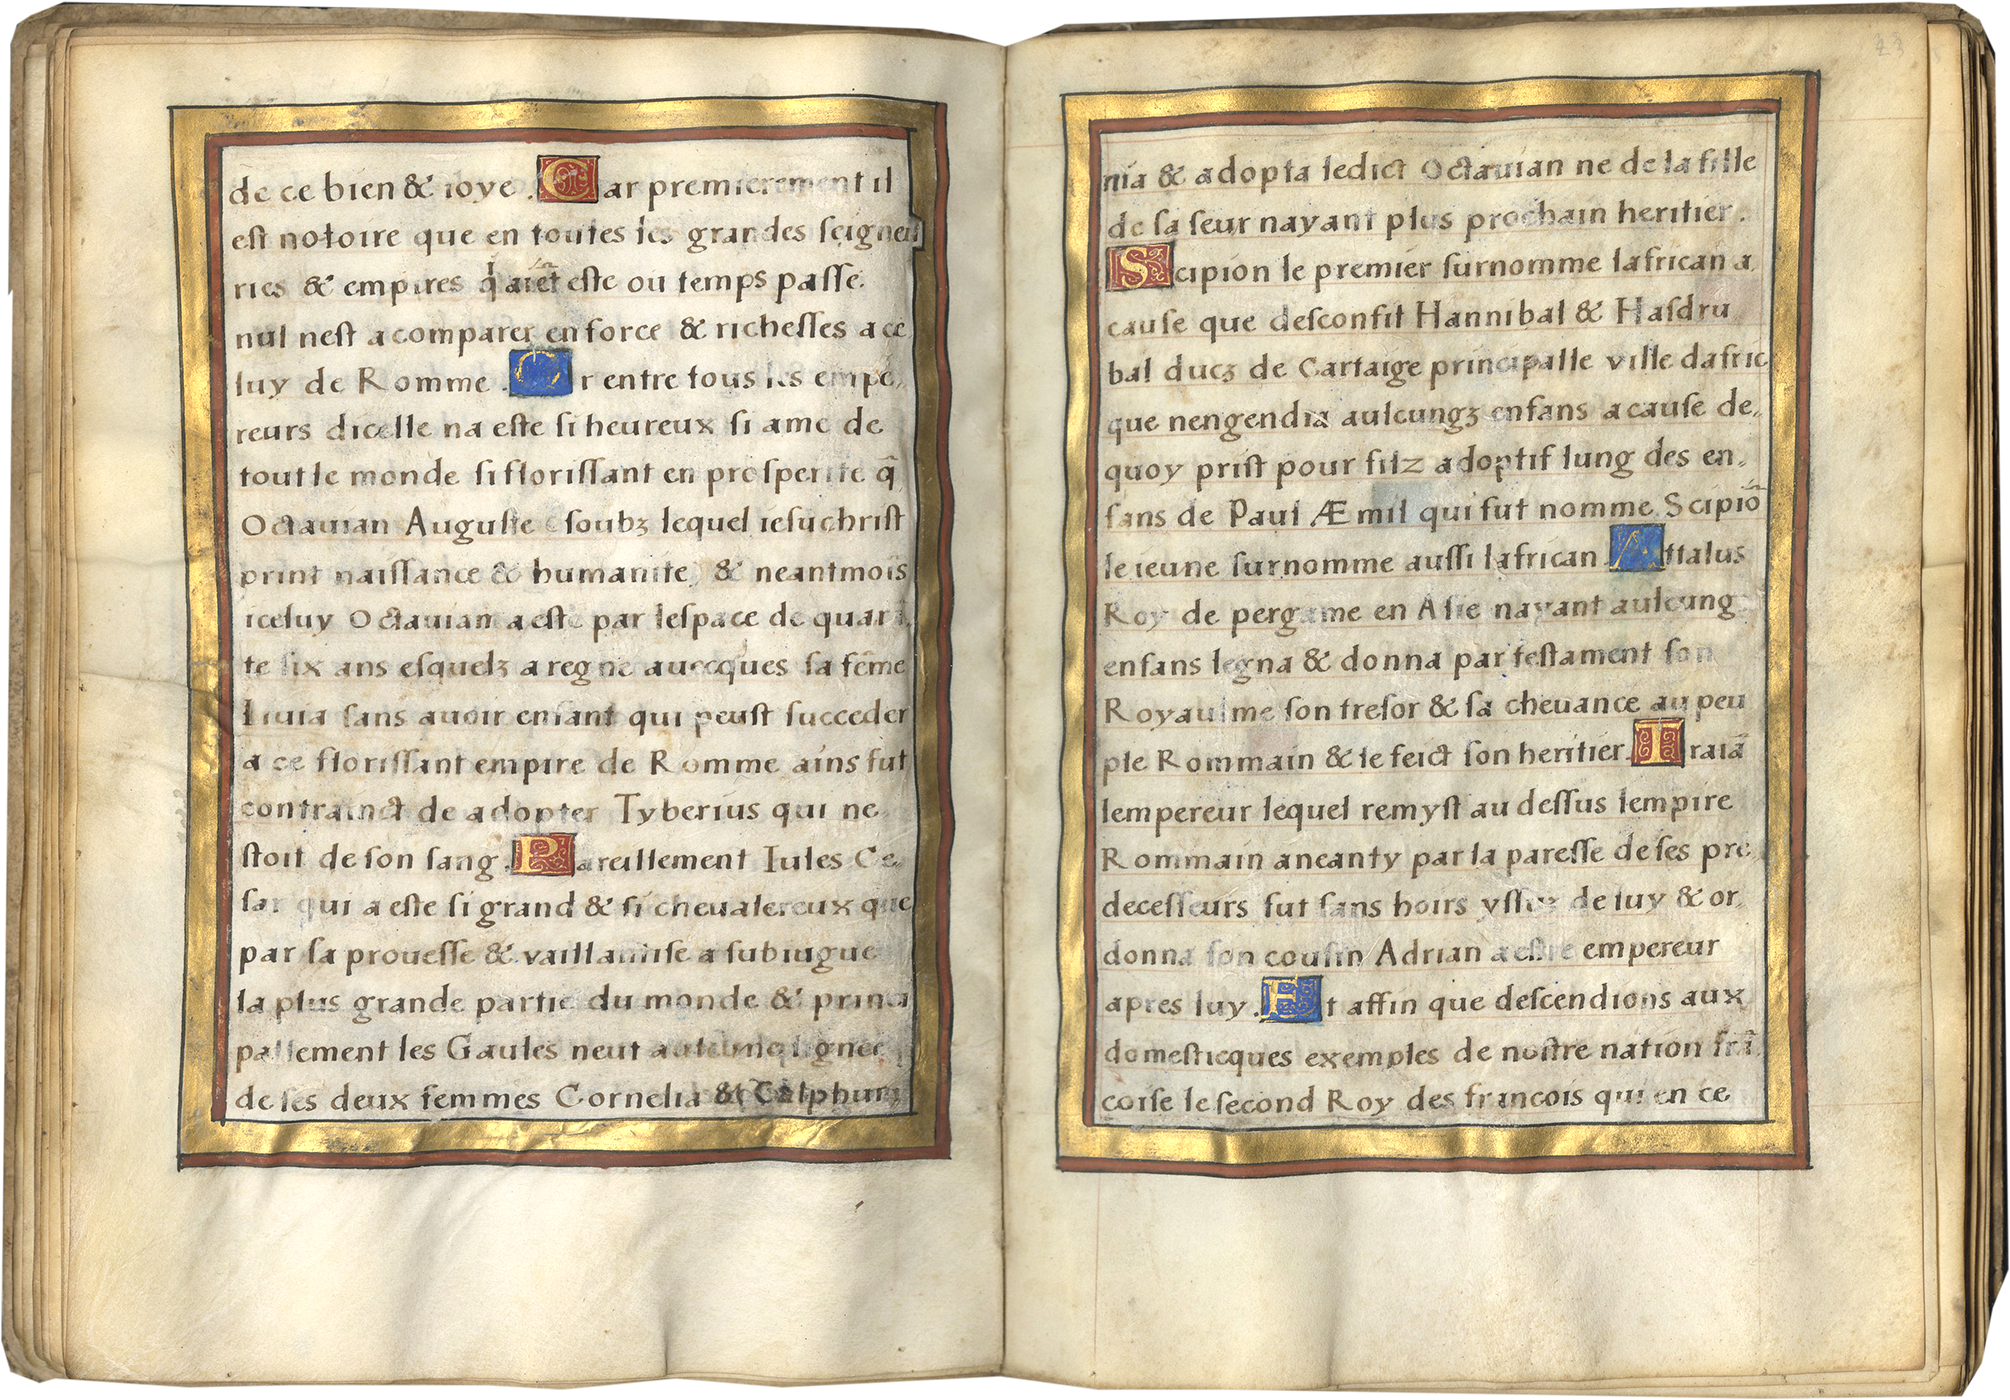 de ce bien & ioye. Car premierement il
est notoire que en toutes les grandes seigneu
ries & empires q̃ aiēt este ou temps passe.
nul nest acomparer en force & richesses a ce
luy de Romme. Or entre tous les empe,
reurs dicelle na este si heureux si ame de
tout le monde si florissant en prosperite q̃
Octauian Auguste soubz lequel iesuchrist
print naissance & humanite, & neantmois
iceluy Octauian a este par lespace de quarā
te six ans esquelz a regne auecques sa fēme
Liuia sans auoir enfant qui peust succeder
a ce florissant empire de Romme ains fut
contrainct de adopter Tyberius qui ne
stoit de son sang. Pareillement Iules Ce,
sar qui a este si grand & si cheualereux que
par sa prouesse & vaillantise a subiugue
la plus grande partie du monde & princi
pallement les Gaules neut aulcune lignee
de ses deux femmes Cornelia & Calphur
23
nia & adopta ledict Octauian ne de la fille
de sa seur nayant plus prochain heritier.
Scipion le premier surnomme lafrican a
cause que desconfit Hannibal & Hasdru
bal ducz de Cartaige principalle ville dafric
que nengendra aulcungz enfans a cause de,
quoy prist pour filz adoptif lung des en,
fans de Paul Æmil qui fut nomme Scipiō
le ieune surnomme aussi lafrican. Attalus
Roy de pergame en Asie nayant aulcung
enfans legna & donna par testament son
Royaulme son tresor & sa cheuance au peu
ple Rommain & le feict son heritier. Traiā
lempereur lequel remyst au dessus lempire
Rommain aneanty par la paresse de ses pre
decesseurs fut sans hoirs yssuz de luy & or,
donna son cousin Adrian a estre empereur
apres luy. Et affin que descendions aux
domesticques exemples de nostre nation frā
coise le second Roy des francois qui en ce